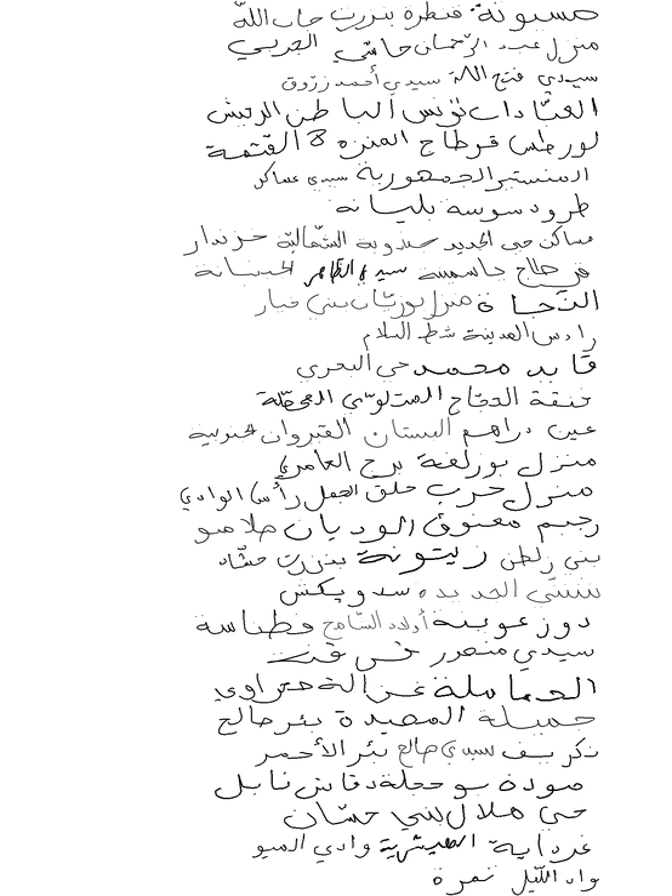 حسيونة قنطرة بنزرت جاب اللّه
منزل عبد الرّحمان حاشي الجربي
سيدي فتح الله سيدي أحمد زرّوق
العبّادات تونس الباطن الرقبش
لورطس قرطاج المنزه 8 القتمة
المنستير الجمهورية سيدي عساكر
طرود سوسة بليانة
مساكن حي الجديد جندوبة الشّمالية خزندار
قرطاج ياسمينة سيدي الظاهر الحبشانة
النّجاة منزل بوزيّان بني خيار
رادس المدينة شط السلام
قايد محمد حي البحري
خنقة الحجّاج المتلوّي المحطّة
عين دراهم البستان القيروان الجنوبية
منزل بوزلفة برج العامري
منزل حرب حلق الجمل رأس الوادي
رجيم معتوق الوديان صلامبو
بني زلطن زيتونة بنزرت حشّاد
شنني الجديدة سدويكش
دوز عوينة أولاد الشّامخ قطناسة
سيدي منصور
الحمامله غزالة حزاوي
جميلة المصيدة بئر صالح
سيدي صالح بئر الأحمر
صودة بوحجلة دقاش نابل
حي هلال بني حسّان
غرداية الهيشرية وادي الميو
واد اللّيل نمرة